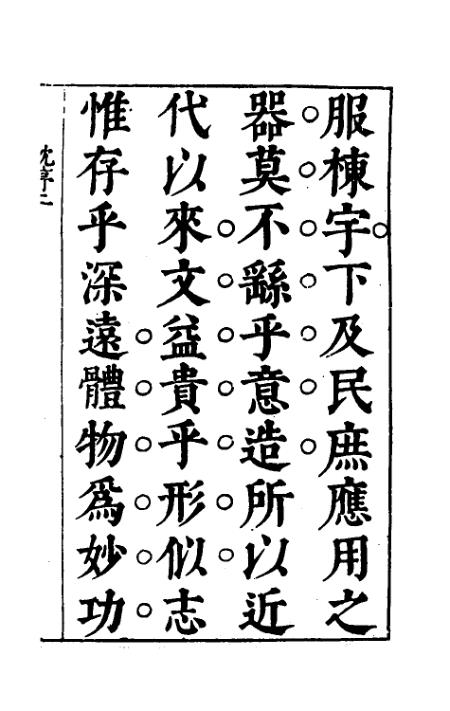 服棟宇下及民庶應用之
器莫不繇乎意造所以近
代以來文益貴乎形似志
惟存乎深遠體物爲妙功
沈序二